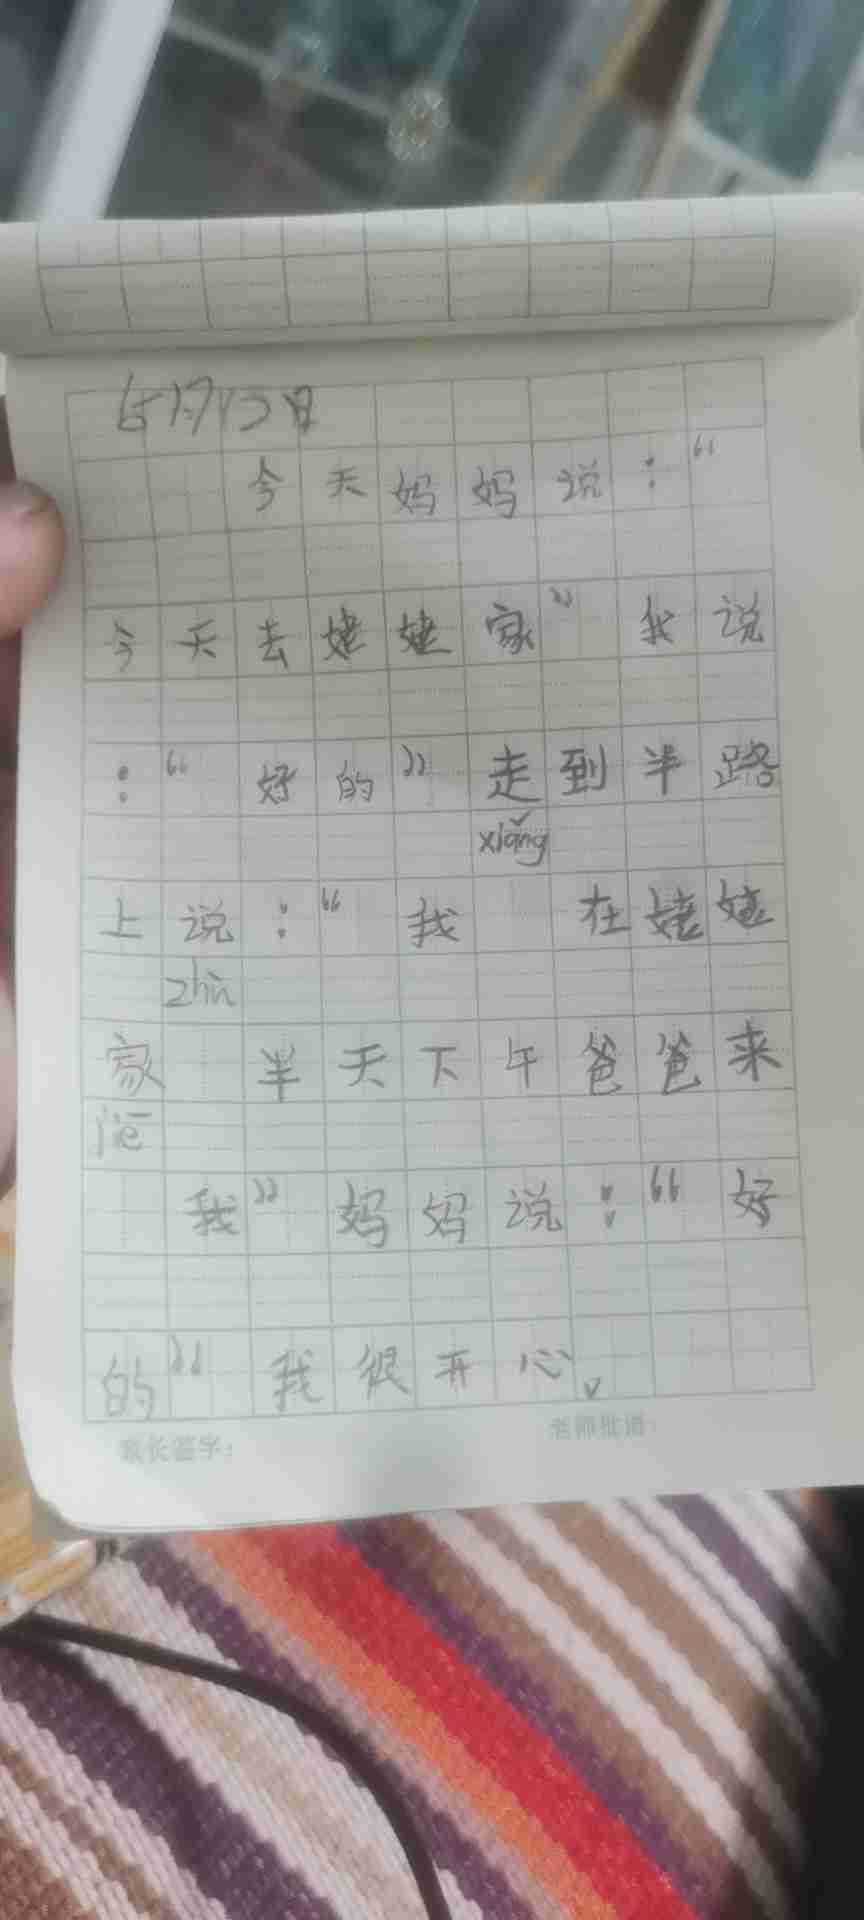 6月13日
今天妈妈说：“
今天去姥姥家”我说
：“好的”走到半路
xiǎng
上说：“我 在姥姥
zhù
家 半天下午爸爸来
jiē
我”妈妈说：“好
的”我很开心。
家长签字： 老师批语：